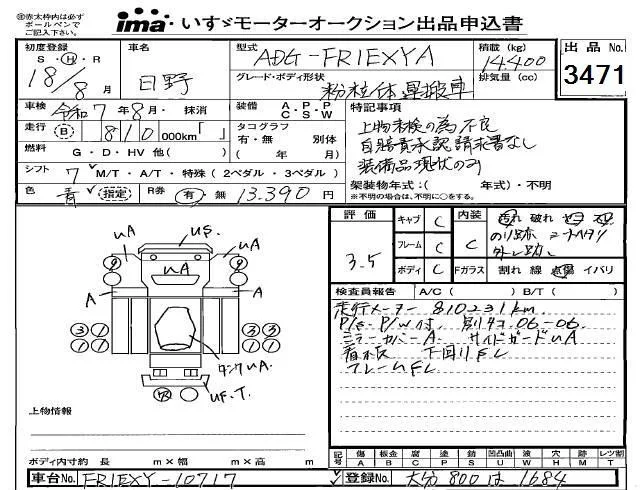 ※赤太枠内は必ず
ボールペンで
ご記入下さい。
ima いすゞモーターオークション出品申込書
初度登録
S・H・R
18/8月
車名
日野
型式
ADG-FR1EXYA
積載(kg)
14400
グレード・ボディ形状
粉粒体運搬車
排気量(cc)
出品No.
3471
車検
令和7年8月・ 抹消
装備 A・P・P C・S・W
特記事項
上物未検の為不良
自賠責承認請求書なし
装備品現状のみ
走行 B 810 000km「 」
タコグラフ
有・無 別体
( 年 月)
燃料 G・D・HV 他( )
シフト 7 M/T・A/T・特殊(2ペダル・3ペダル)
架装物年式:( 年式)・不明
※不明の場合は、不明に○をする。
色 青 (指定) R券 有・無 13.390円
評価
3.5
キャブ C
フレーム C
ボディ C
内装 C
Fガラス
汚れ 破れ
のり跡 シートヘタリ
外し跡
割れ 線 点傷 イバリ
検査員報告 A/C( ) B/T( )
走行メーター 810231km
P/S・P/W付. 別タコ06-06
ミラーカバーA. サイドガードUA
下回りFL
フレームFL
UA US. UA
9 UA 9
A A
3 1 1 3
1 1 1 1
タンクUA.
UF.T.
上物情報
ボディ内寸約 長 m×幅 m×高 m
記号 傷 A 板金 B 腐 C 塗 P 錆 S 凹凸曲 U 波 W 穴 H 欠 M レンズ割 T
車台No. FR1EXY-10717
登録No. 大分 800 は 1684